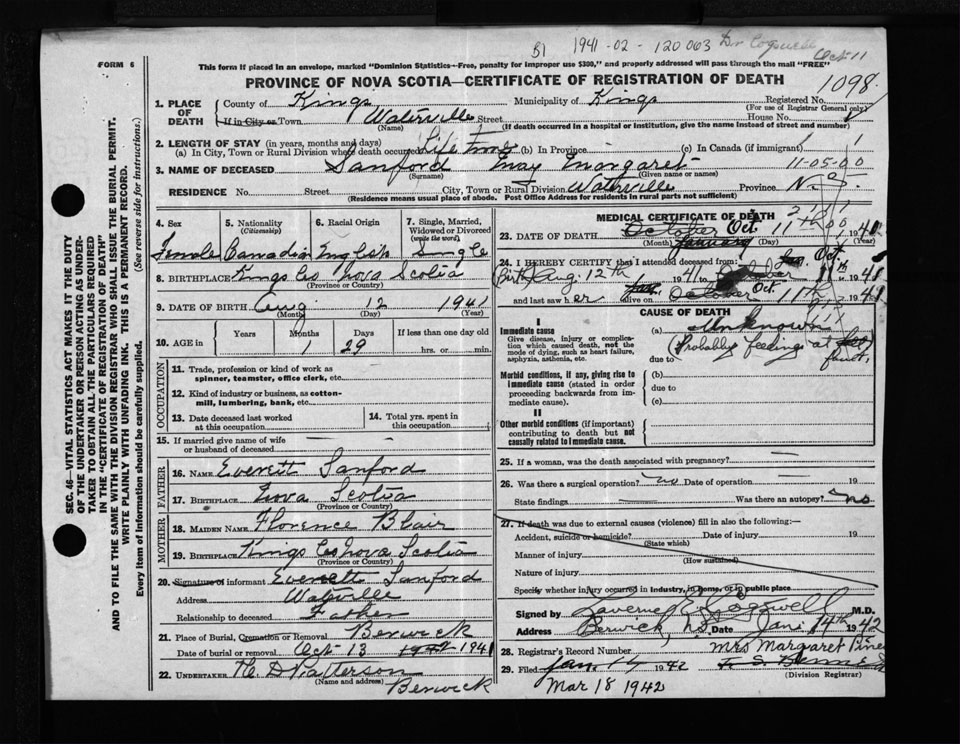 B1 1941-02-120063 Dr Cogswell
Oct 11
FORM 6
This form if placed in an envelope, marked "Dominion Statistics—Free, penalty for improper use $300," and properly addressed will pass through the mail "FREE"
PROVINCE OF NOVA SCOTIA—CERTIFICATE OF REGISTRATION OF DEATH
1098
1. PLACE OF DEATH
County of Kings Municipality of Kings Registered No.
(For use of Registrar General only)
If in City or Town Waterville Street House No.
(Name) (If death occurred in a hospital or institution, give the name instead of street and number)
2. LENGTH OF STAY (in years, months and days)
(a) In City, Town or Rural Division where death occurred Life time (b) In Province (c) In Canada (if immigrant)
3. NAME OF DECEASED Sanford May Margaret 11-05-00
(Surname) (Given name or names)
RESIDENCE No. Street City, Town or Rural Division Waterville Province N.S.
(Residence means usual place of abode. Post Office Address for residents in rural parts not sufficient)
SEC. 46—VITAL STATISTICS ACT MAKES IT THE DUTY
OF THE UNDERTAKER OR PERSON ACTING AS UNDER-
TAKER TO OBTAIN ALL THE PARTICULARS REQUIRED
IN THE "CERTIFICATE OF REGISTRATION OF DEATH"
AND TO FILE THE SAME WITH THE DIVISION REGISTRAR WHO SHALL ISSUE THE BURIAL PERMIT.
WRITE PLAINLY WITH UNFADING INK. THIS IS A PERMANENT RECORD.
Every item of Information should be carefully supplied. (See reverse side for instructions.)
4. Sex
Female
5. Nationality
(Citizenship)
Canadian
6. Racial Origin
English
7. Single, Married,
Widowed or Divorced
(write the word)
Single
8. BIRTHPLACE Kings Co Nova Scotia
(Province or Country)
9. DATE OF BIRTH Aug. 12 1941
(Month) (Day) (Year)
10. AGE in
Years Months Days If less than one day old
1 29 hrs. or min.
OCCUPATION
11. Trade, profession or kind of work as
spinner, teamster, office clerk, etc.
12. Kind of industry or business, as cotton-
mill, lumbering, bank, etc.
13. Date deceased last worked
at this occupation
14. Total yrs. spent in
this occupation
15. If married give name of wife
or husband of deceased
FATHER
16. NAME Everett Sanford
17. BIRTHPLACE Nova Scotia
(Province or Country)
MOTHER
18. MAIDEN NAME Florence Blair
19. BIRTHPLACE Kings Co Nova Scotia
(Province or Country)
20. Signature of informant Everett Sanford
Address Waterville
Relationship to deceased Father
21. Place of Burial, Cremation or Removal Berwick
Date of burial or removal Oct 13 1942 1941
22. UNDERTAKER H. D. Patterson
(Name and address) Berwick
MEDICAL CERTIFICATE OF DEATH
23. DATE OF DEATH October Oct. 11th 1941
(Month) January (Day) (Year)
24. I HEREBY CERTIFY that I attended deceased from:
(Birth) Aug. 12th 1941 to October Oct. 11th 1941
and last saw her alive on October Oct. 11th 1941
CAUSE OF DEATH
I
Immediate cause
Give disease, injury or compli-
cation which caused death, not the
mode of dying, such as heart failure,
asphyxia, asthenia, etc.
(a) Unknown
(Probably feelings at
due to fault,
Morbid conditions, if any, giving rise to
immediate cause (stated in order
proceeding backwards from im-
mediate cause).
(b)
due to
(c)
II
Other morbid conditions (if important)
contributing to death but not
causally related to immediate cause.
25. If a woman, was the death associated with pregnancy?
26. Was there a surgical operation? no Date of operation 19
State findings Was there an autopsy? no
27. If death was due to external causes (violence) fill in also the following:—
Accident, suicide or homicide? Date of injury 19
(State which)
Manner of injury
(How sustained)
Nature of injury
Specify whether injury occurred in Industry, in home, or in public place
Signed by Laverne R. Cogswell M.D.
Address Berwick, N.S. Date Jan. 14th 1942
28. Registrar's Record Number Mrs Margaret
29. Filed Jan. 19 1942
(Division Registrar)
Mar 18 1942